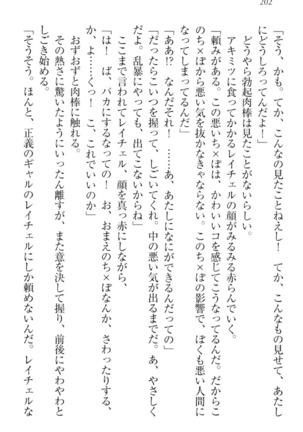 202
「そう、かも。てか、こんなの見たことねえし！　てか、こんな
にどうしろってんだよ！」
　どうやら勃起肉棒は見たことがないらしい。
　アキミツに食ってかかるレイチェルの顔がみるみる赤らんでいく。
「頼みがある。この悪いち×ぽは、かわいいコを感じてこうなってるんだ。だからこ
のち×ぽから悪い気を抜かなきゃならない。このち×ぽの影響で、ぼくも悪い人間に
なってしまってるんだ」
「ああ!?　なんだそれ！……あ、あたしになにができるんだっての」
「だったらこいつを握って、しごいてくれ。中の悪い気が出るまでだ。あ、やさしく
だよ。乱暴にやっても、出てこないからね」
　ここまで言われてレイチェル、顔を真っ赤にしながら、
「は！　ば、バカにするなっての！　お、おまえのち×ぽなんか、さわったりする、
か、よ……くっ！　こ、これでいいのか」
　おずおずと肉棒に触れる。
　その熱さに驚いたようにいったん離すが、また意を決して握り、前後にやわやわと
しごき始める。
「そうそう。ほんと、正義のギャルのレイチェルにしか頼めないんだ。レイチェルな